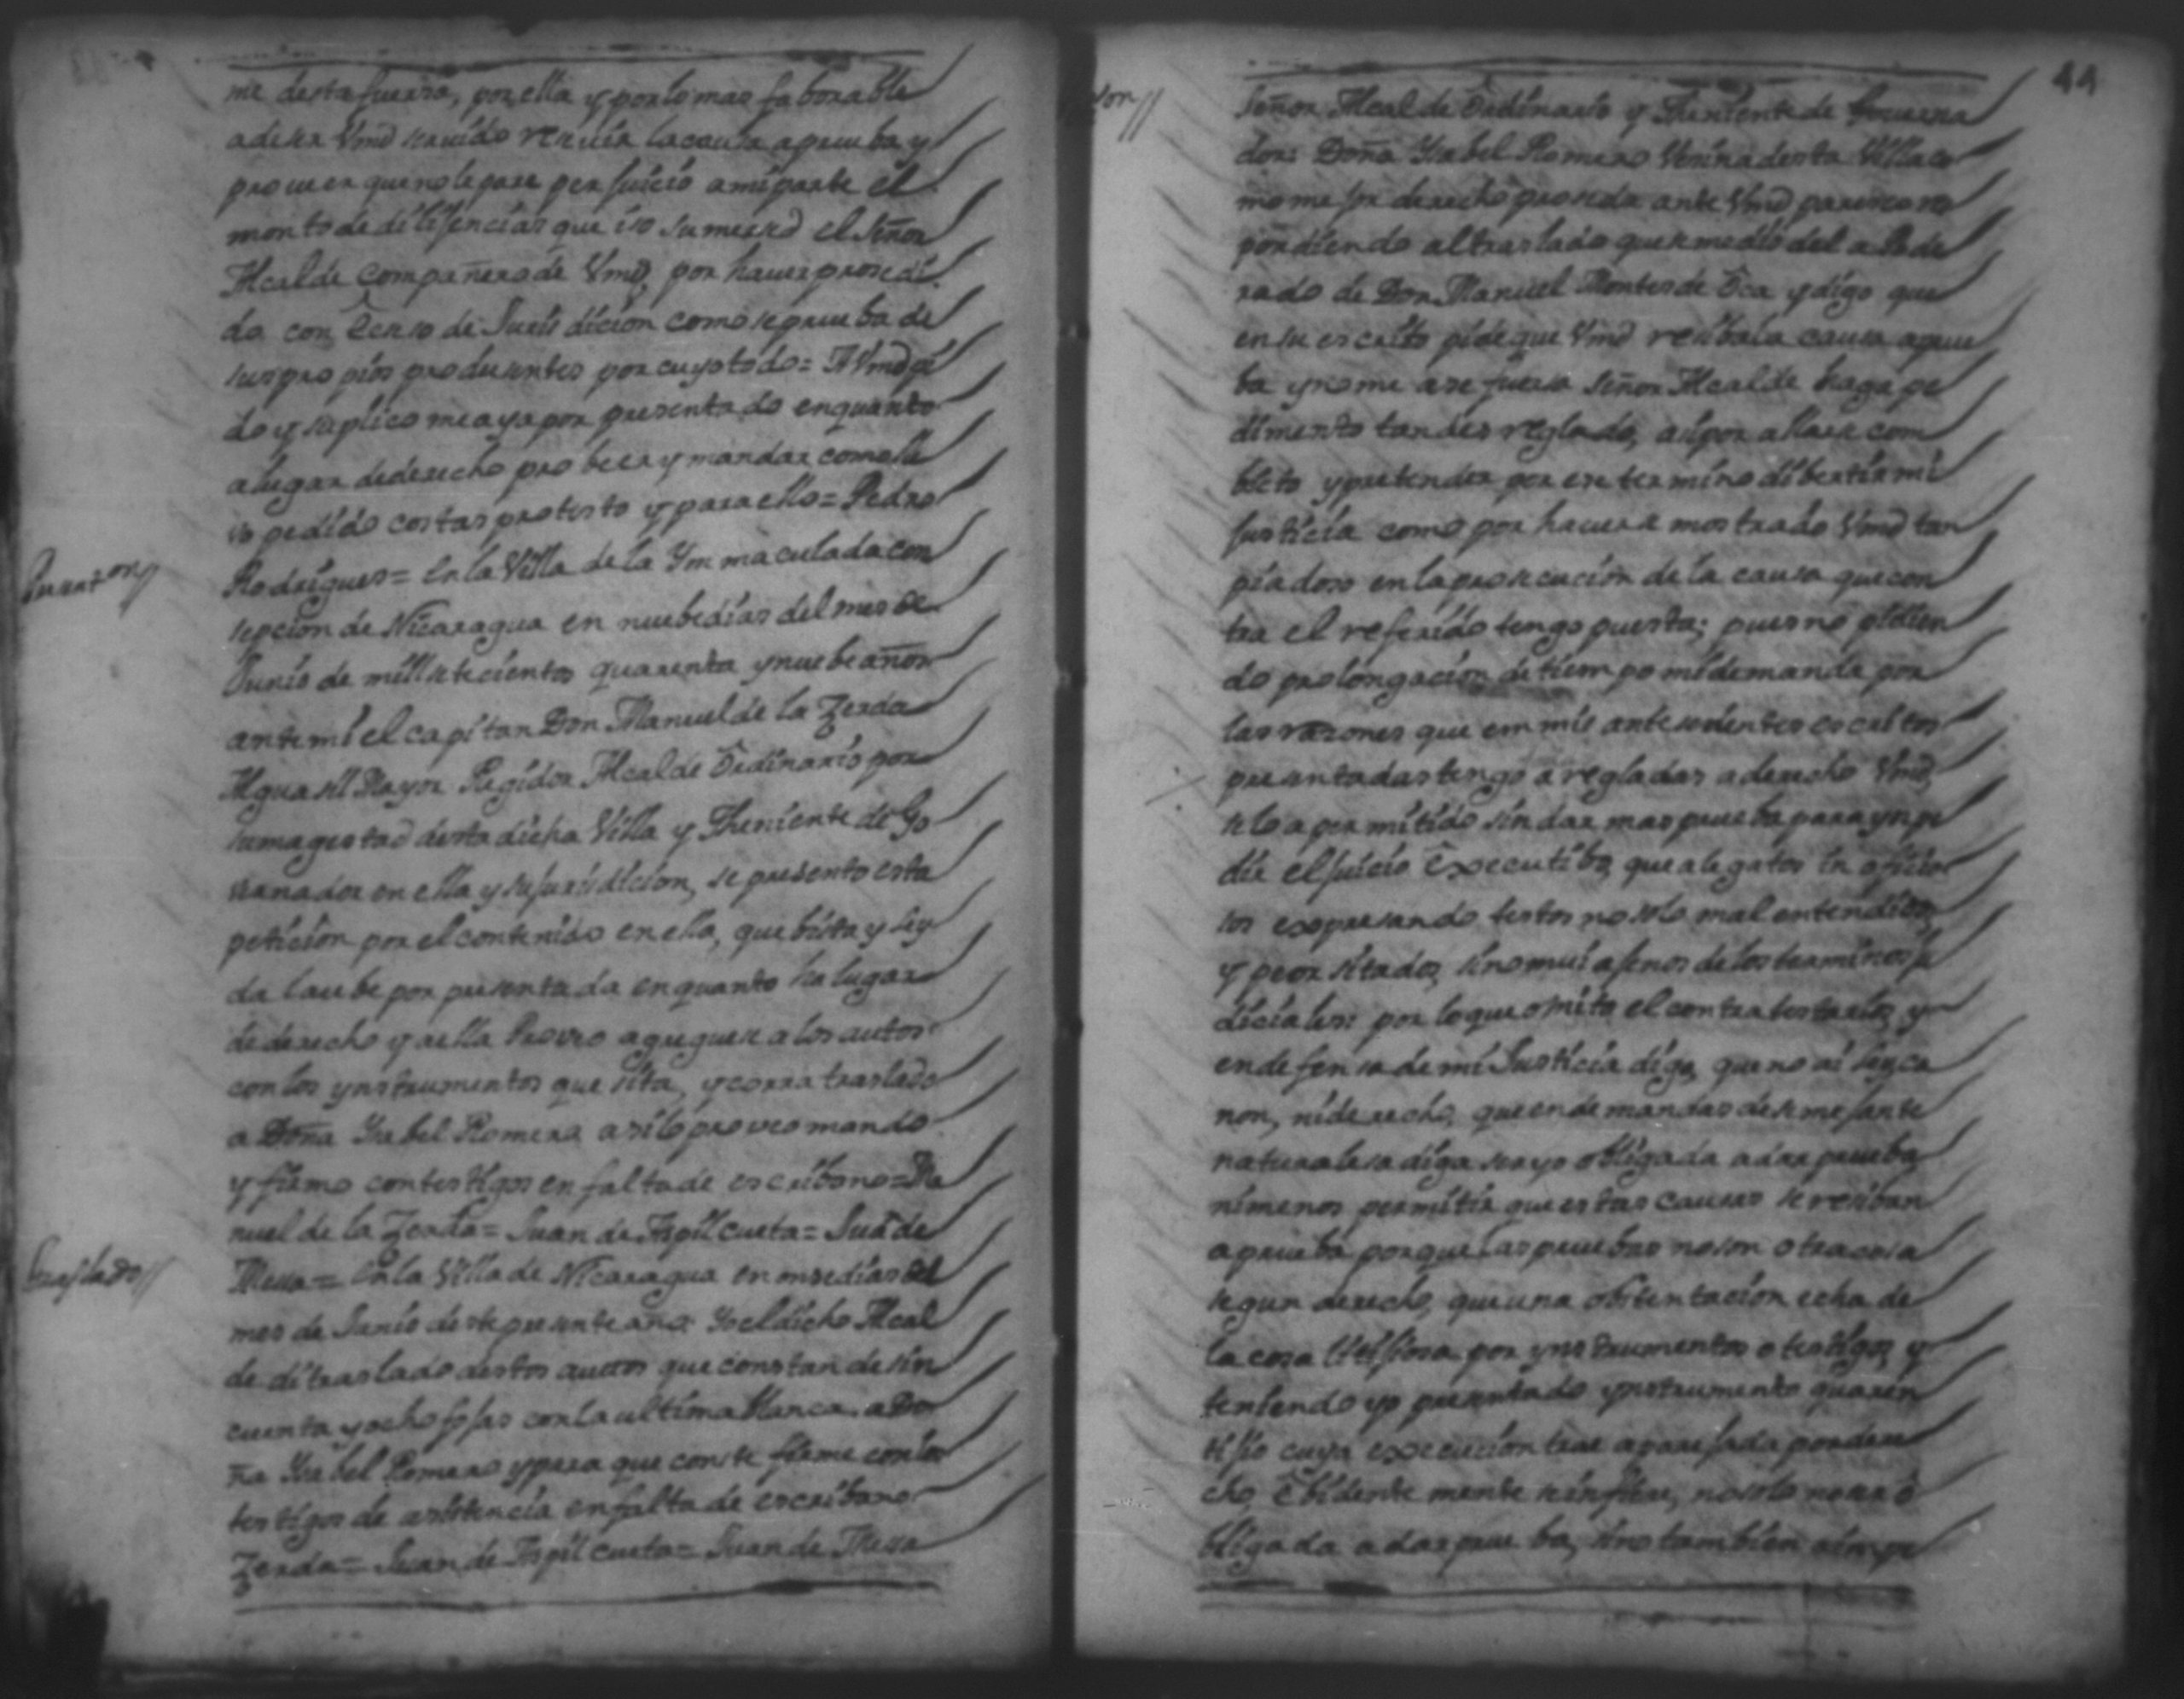 me desta fuersa, por ella y por lo mas faborable
a de ser Vmd servido resevir la causa a prueba y
proveer que no le pare perjuicio a mi parte el
monto de dilijencias que iso su merced el Señor
Alcalde compañero de Vmd, por haver prosedi
do con Ecxso de Jurisdicion como se prueba de
sus propios produsentes por cuyo todo = A Vmd pi
do y suplico me aya por presentado en quanto
a lugar de derecho probeer y mandar como lle
vo pedido costas protesto y para ello = Pedro
Presenton // Rodrigues = En la Villa de la Ymmaculada con
sepcion de Nicaragua en nuebe dias del mes de
Junio de mill setecientos quarenta y nuebe años
ante mi el capitan Don Manuel de la Zerda
Alguasil Mayor Regidor Alcalde Ordinario por
su magestad desta dicha Villa y Theniente de Go
vernador en ella y su jurisdicion, se presento esta
peticion por el contenido en ella, que bista y ley
da la ube por presentada en quanto ha lugar
de derecho y a ella Proveo agreguese a los autos
con los ynstrumentos que sita, y corra traslado
a Doña Ysabel Romero asi lo proveo mando
y firmo con testigos en falta de escribano = Ma
nuel de la Zerda = Juan de Aspilcueta = Juan de
Traslado // Mesa = En la Villa de Nicaragua en onse dias del
mes de Junio deste presente año Yo el dicho Alcal
de di traslado destos autos que constan de sin
cuenta y ocho fojas con la ultima blanca. a Do
ña Ysabel Romero y para que conste firme con los
testigos de asistencia en falta de escribano
Zerda = Juan de Aspilcueta = Juan de Mesa
44
Señor Alcalde Ordinario y Theniente de Governa
dor: Doña Ysabel Romero Vesina desta Villa co
mo mejor de derecho proseda ante Vmd paresco res
pondiendo al traslado que se me dio del apode
rado de Don Manuel Montes de Oca y digo que
en su escrito pide que Vmd resiba la causa a prue
ba y no me ase fuersa Señor Alcalde haga pe
dimento tan desreglado, asi por allarse com
bicto y pretender por ese termino dibertir mi
justicia como por haverse mostrado Vmd tan
piadoso en la prosecucion de la causa que con
tra el referido tengo puesta; pues no pidien
do prolongacion de tiempo mi demanda por
las razones que em mis antesedentes escritos
presentadas tengo a regladas a derecho Vmd,
se lo a permitido sin dar mas prueba para ynpe
dir el juicio Executibo, que alegatos in oficio
sos expresando testos no solo mal entendidos,
y peor sitados, sino mui ajenos de los terminos ju
diciales: por lo que omito el contratestarlos, y
en defensa de mi Justicia digo, que no ai ley ca
non, ni derecho, que en demandas de semejante
naturalesa diga ser yo obligada a dar prueba,
ni menos permitir que estas causas se resiban
a prueba, porque las pruebas no son otra cosa
segun derecho, que una obstentacion echa de
la cosa litijiosa por ynstrumentos o testigos, y
teniendo yo presentado ynstrumento quaren
tijio cuya execucion trae aparejada por dere
cho, Ebidentemente se infiere, no solo no ser o
bligada a dar prueba, sino tambien